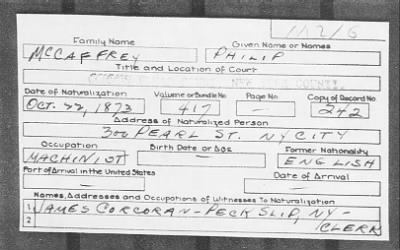 Family Name Given Name or Names
McCAFFREY PHILIP
Title and Location of Court
Date of Naturalization Volume or Bundle No Page No Copy of Record No
OCT. 22, 1873 417 — 242
Address of Naturalized Person
300 PEARL ST. NY CITY
Occupation Birth Date or Age Former Nationality
MACHINIST — ENGLISH
Port of Arrival in the United States Date of Arrival
— —
Names, Addresses and Occupations of Witnesses To Naturalization
1 JAMES CORCORAN - PECK SLIP, NY -
2 CLERK